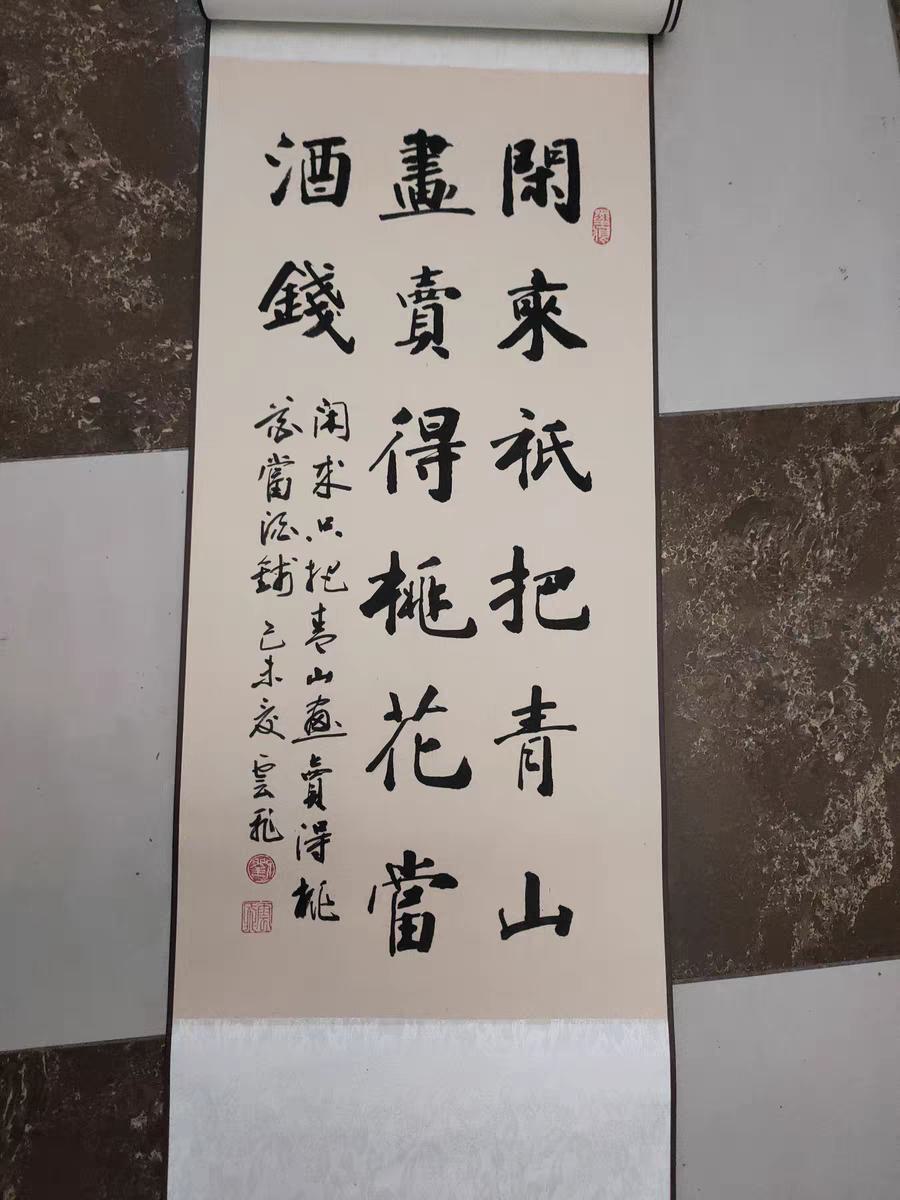 閑來祇把青山
畫賣得桃花當
酒錢
闲來只把青山画賣得桃
花當酒錢 己未夏雲飛